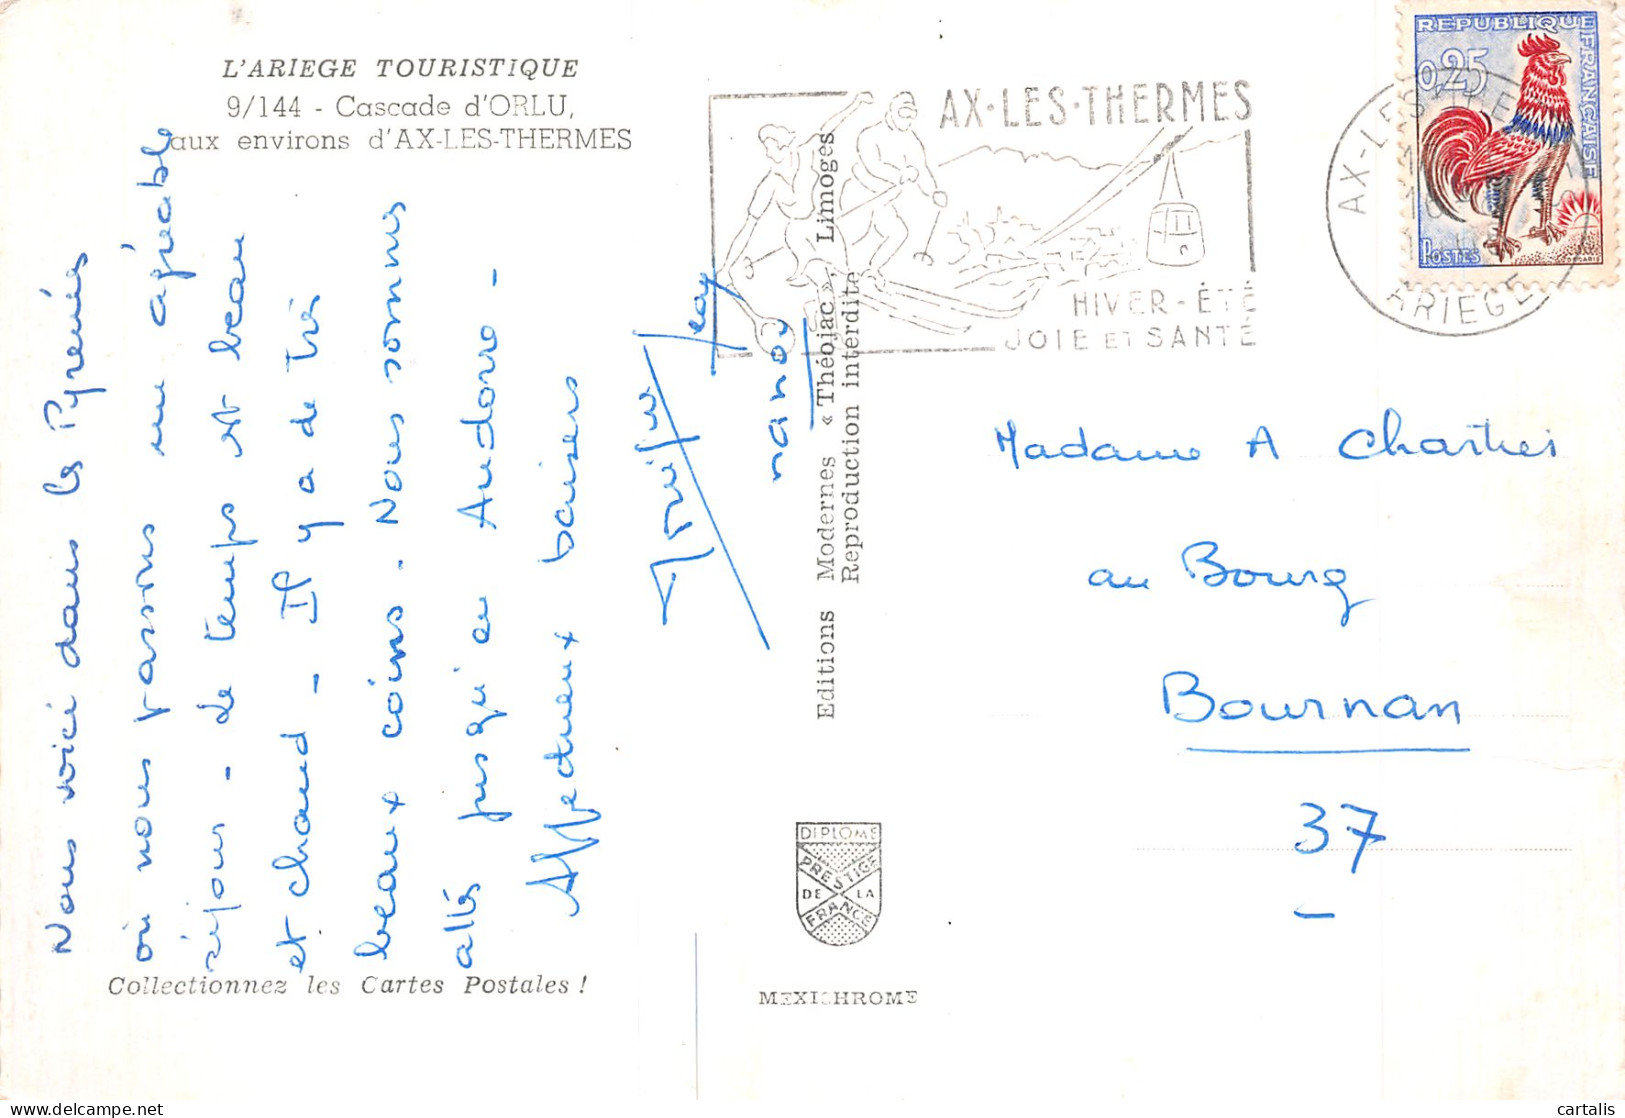 L'ARIEGE TOURISTIQUE
9/144 - Cascade d'ORLU,
aux environs d'AX-LES-THERMES
Nous voici dans les Pyrénées
où nous passons un agréable
séjour - le temps est beau
et chaud - Il y a de très
beaux coins. Nous sommes
allés jusqu'en Andorre -
Affectueux baisers
Collectionnez les Cartes Postales !
Editions Modernes « Théojac », Limoges
Reproduction interdite
DIPLOME
PRESTIGE
DE LA
FRANCE
MEXICHROME
AX·LES·THERMES
HIVER - ÉTÉ
JOIE ET SANTÉ
AX-LES-THERMES
ARIEGE
REPUBLIQUE
FRANÇAISE
0,25
POSTES
Madame A Chartier
au Bourg
Bournan
37
cartalis | delcampe.net